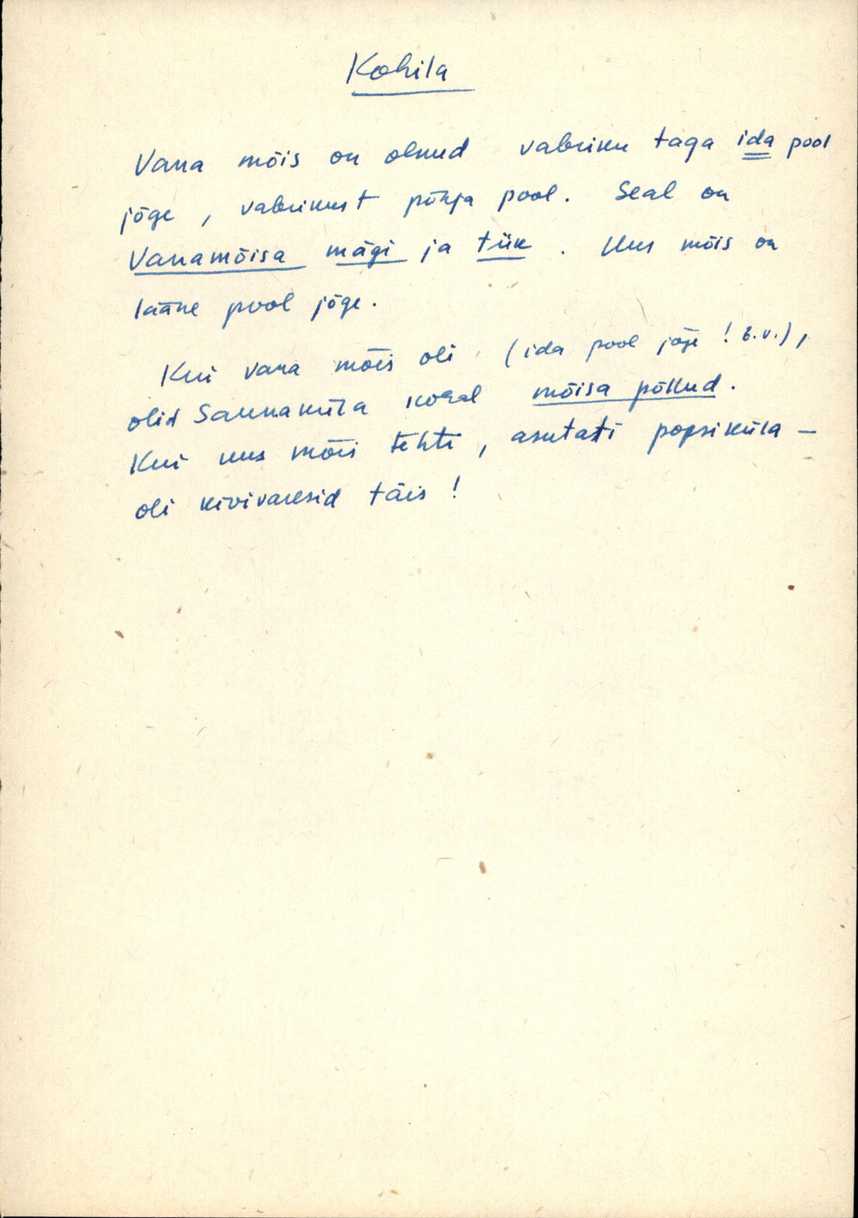 Kohila
Vana mõis on olnud vabriku taga ida pool
jõge, vabrikust põhja pool. Seal on
Vanamõisa mägi ja tiik. Uus mõis on
lääne pool jõge.
Kui vana mõis oli (ida pool jõge! E.V.),
olid Saunaküla kohal mõisa põllud.
Kui uus mõis tehti, asutati popsiküla –
oli kivivaresid täis!